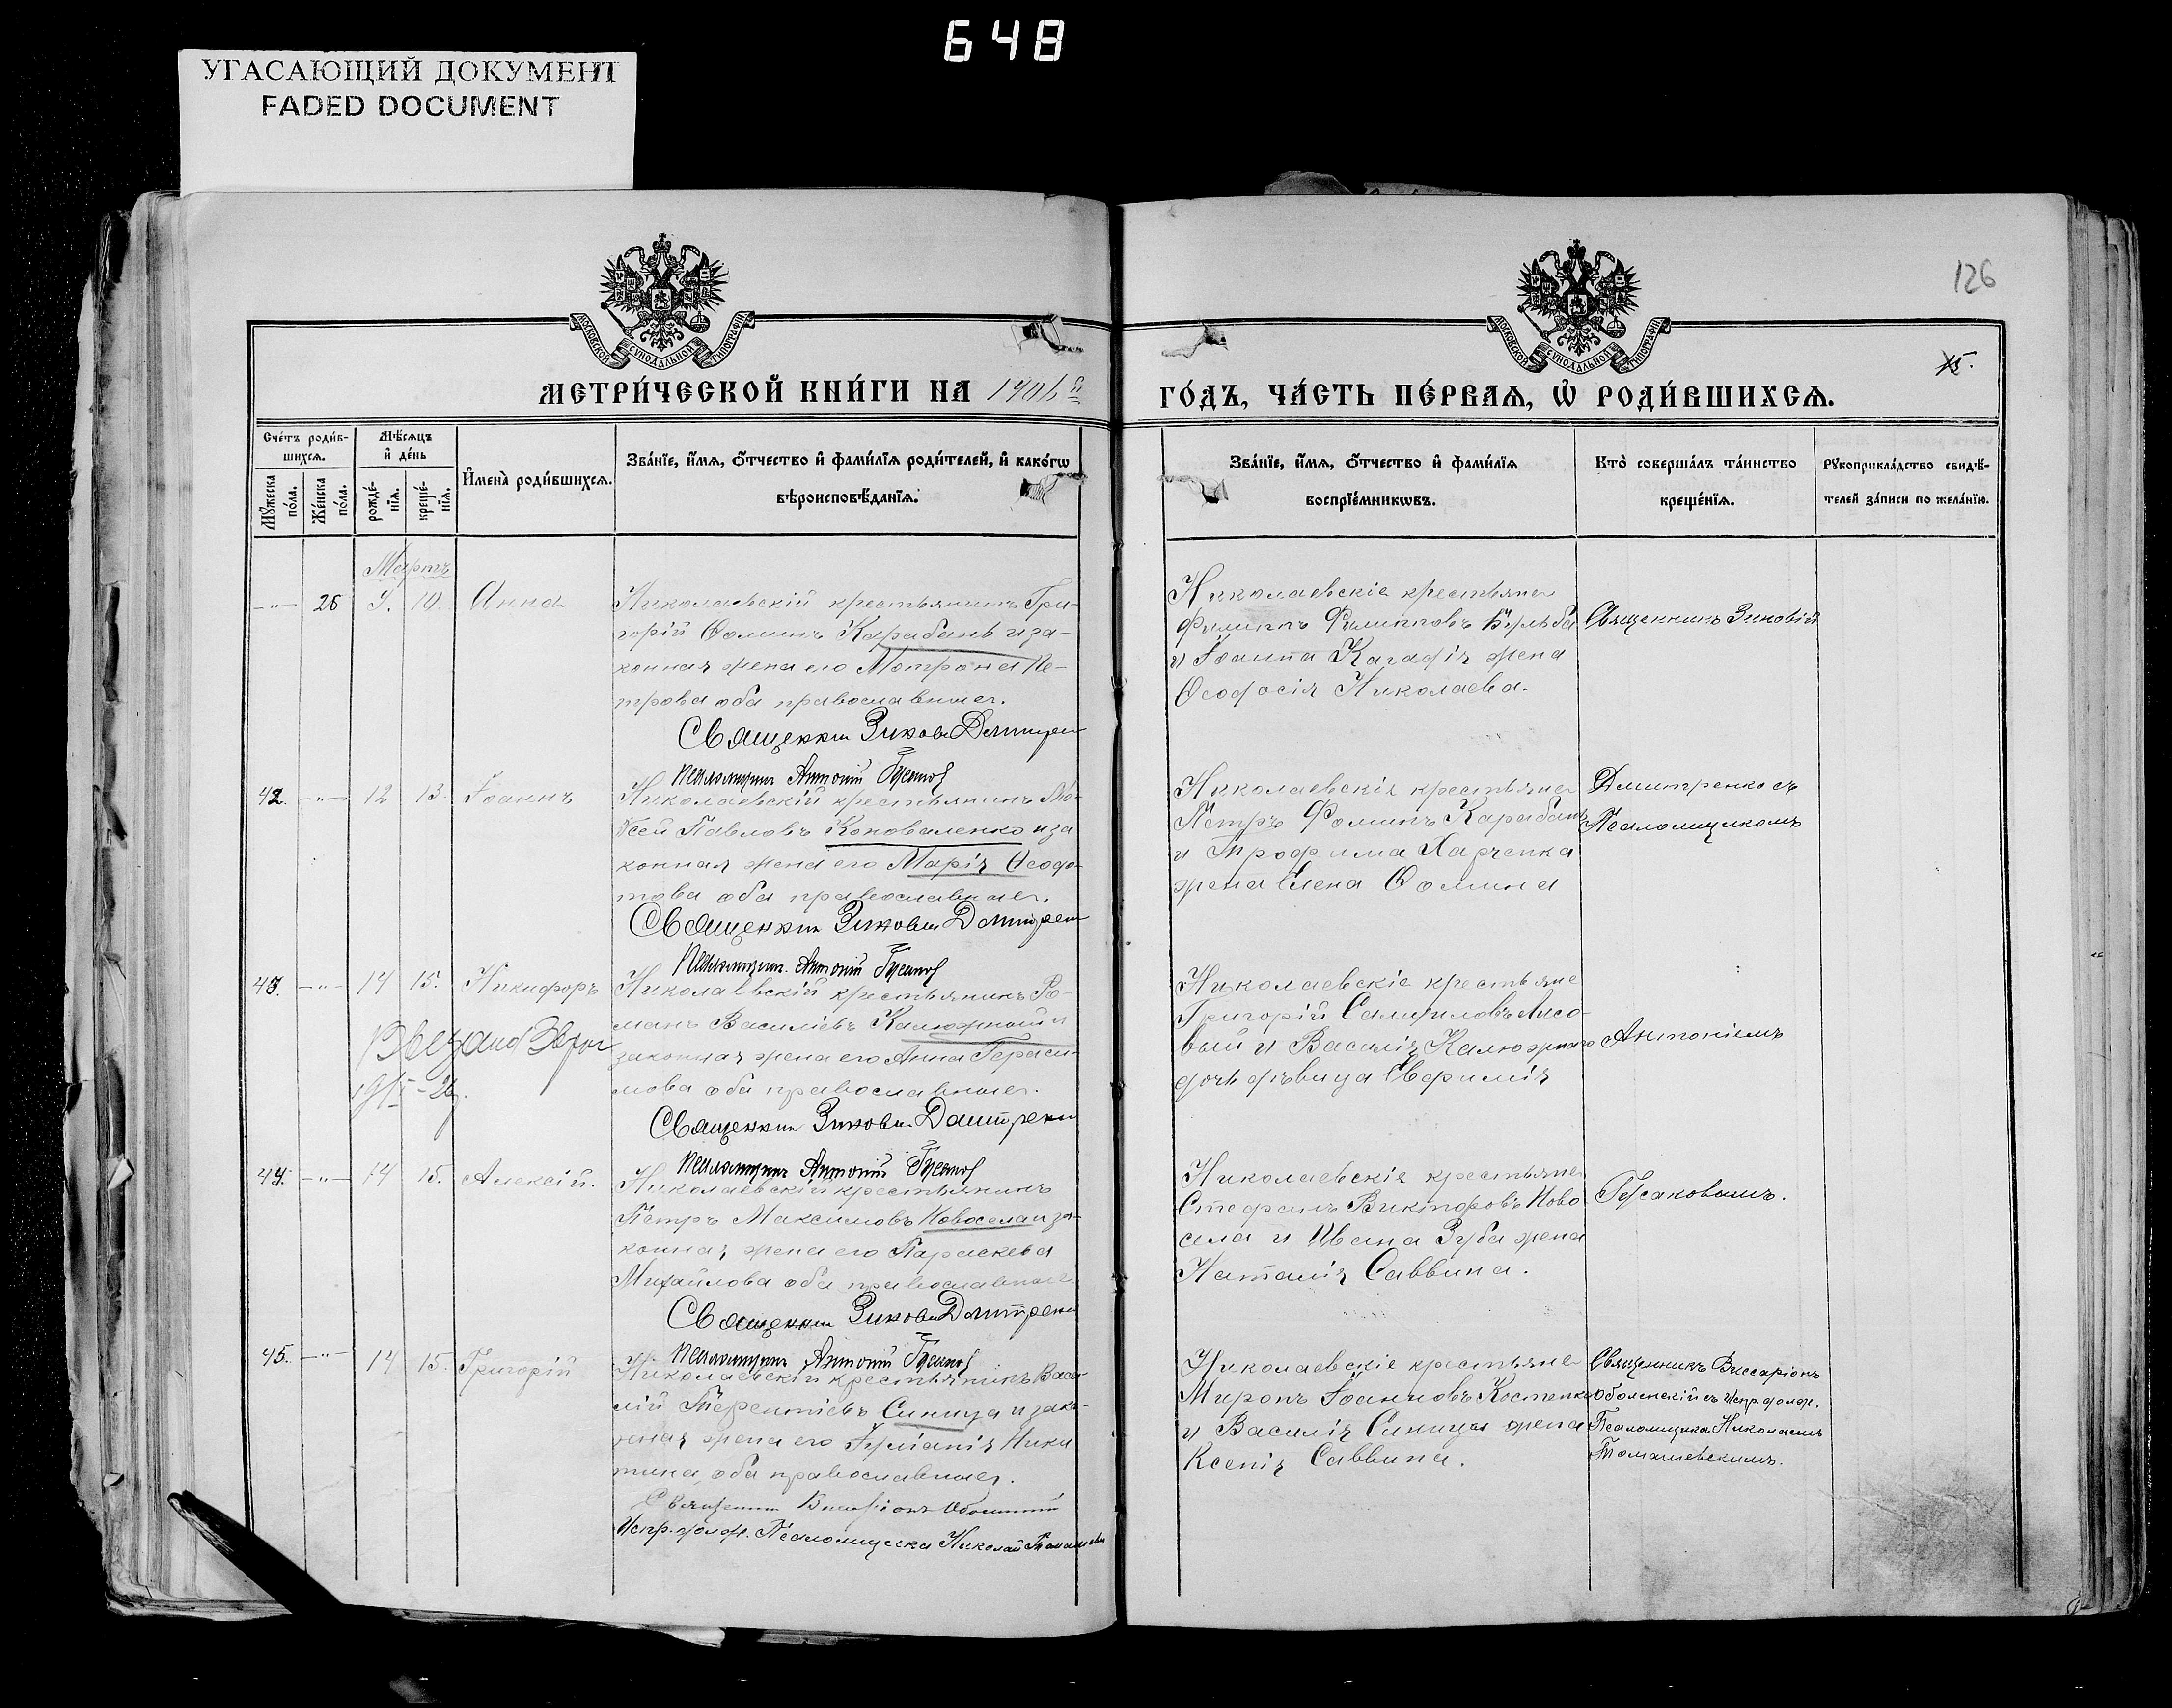 648
УГАСАЮЩИЙ ДОКУМЕНТ
FADED DOCUMENT
126
МОСКОВСКОЙ СѴНОДАЛЬНОЙ ТИПОГРАФІИ
МОСКОВСКОЙ СѴНОДАЛЬНОЙ ТИПОГРАФІИ
МЕТРИ́ЧЕСКОЙ КНИ́ГИ НА 1906 й
ГО́ДЪ, ЧА́СТЬ ПЕ́РВАѦ, Ѡ҆ РОДИ́ВШИХСѦ.
Сче́тъ роди́в-
шихсѧ.
Мѣ́сѧцъ
и҆ де́нь
Мꙋ́жеска по́ла.
Же́нска по́ла.
рожде́-
нїѧ.
креще́-
нїѧ.
И҆мена̀ роди́вшихсѧ.
Зва́нїе, и҆́мѧ, ѻ҆́тчество и҆ фами́лїѧ роди́телей, и҆ како́гѡ
вѣроисповѣ́данїѧ.
Зва́нїе, и҆́мѧ, ѻ҆́тчество и҆ фами́лїѧ
воспрїе́мникѡвъ.
Кто̀ соверша́лъ та́инство
креще́нїѧ.
Рꙋкоприкла́дство свидѣ́-
телей за́писи по жела́нїю.
Мартъ
-"- 26 9. 10. Анна
Николаевскій крестьянинъ Гри-
горій Ѳоминъ Карабанъ и за-
конная жена его Матрона Пе-
трова оба православные.
Священник Зинови Дмитрен
Псаломщик Антоній Гусаков
Николаевскіе крестьяне
Филиппъ Филипповъ Бульба
и Іоанна жена
Ѳеодосія Николаева.
Священникъ Зиновій
42. -"- 12 13. Іоаннъ
Николаевскій крестьянинъ Мо-
ѵсей Павловъ Коноваленко и за
конная жена его Марія Ѳеодо-
това оба православные.
Священник Зинови Дмитрен
Псаломщик Антоній Гусаков
Николаевскіе крестьяне
Петръ Ѳоминъ Карабанъ
и Трофима Харченка
жена Елена Ѳомина
Дмитренко съ
Псаломщикомъ
43. -"- 14 15. Никифоръ
Николаевскій крестьянинъ Ро-
манъ Василіевъ Калюжный и
законная жена его Анна Гераси-
мова оба православные.
Священник Зинови Дмитрен
Псаломщик Антоній Гусаков
Николаевскіе крестьяне
Григорій Самуиловъ Лисо-
вый и Василія Калюжнаго
дочь дѣвица Евфимія
Антоніемъ
44. -"- 14 15. Алексій.
Николаевскій крестьянинъ
Петръ Максимовъ Новосела и за-
конная жена его Параскева
Михайлова оба православные
Священник Зинови Дмитрен
Псаломщик Антоній Гусаков
Николаевскіе крестьяне
Стефанъ Викторовъ Ново
села и Ивана Зуба жена
Наталія Саввина.
Гусаковымъ.
45. -"- 14 15. Григорій
Николаевскій крестьянинъ Васи-
лій Терентіевъ Синица и зако-
нная жена его Ники
тина, оба православные.
Священник Виссаріонъ Оболенскій
Испр. долж. Псаломщика Николай Томашевс
Николаевскіе крестьяне
Миронъ Іоанновъ Костенко
и Василія Синицы жена
Ксенія Саввина.
Священникъ Виссаріонъ
Оболенскій съ Испр. долж.
Псаломщика Николаемъ
Томашевскимъ.